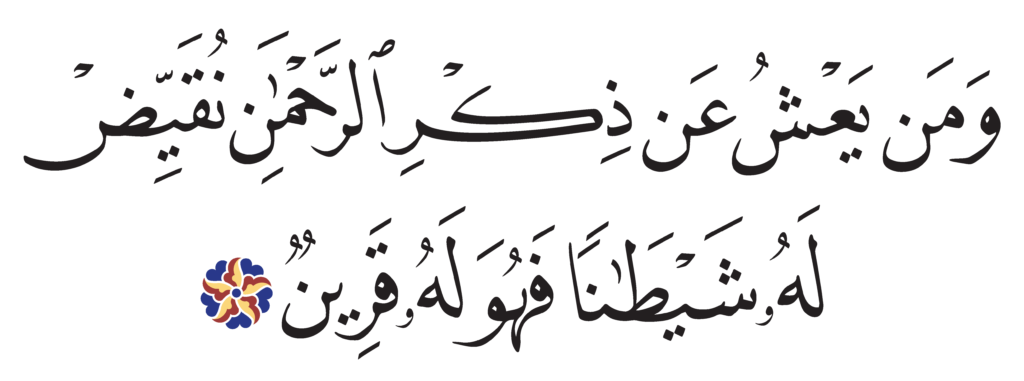 وَمَن يَعْشُ عَن ذِكْرِ ٱلرَّحْمَٰنِ نُقَيِّضْ
لَهُۥ شَيْطَٰنًا فَهُوَ لَهُۥ قَرِينٌ